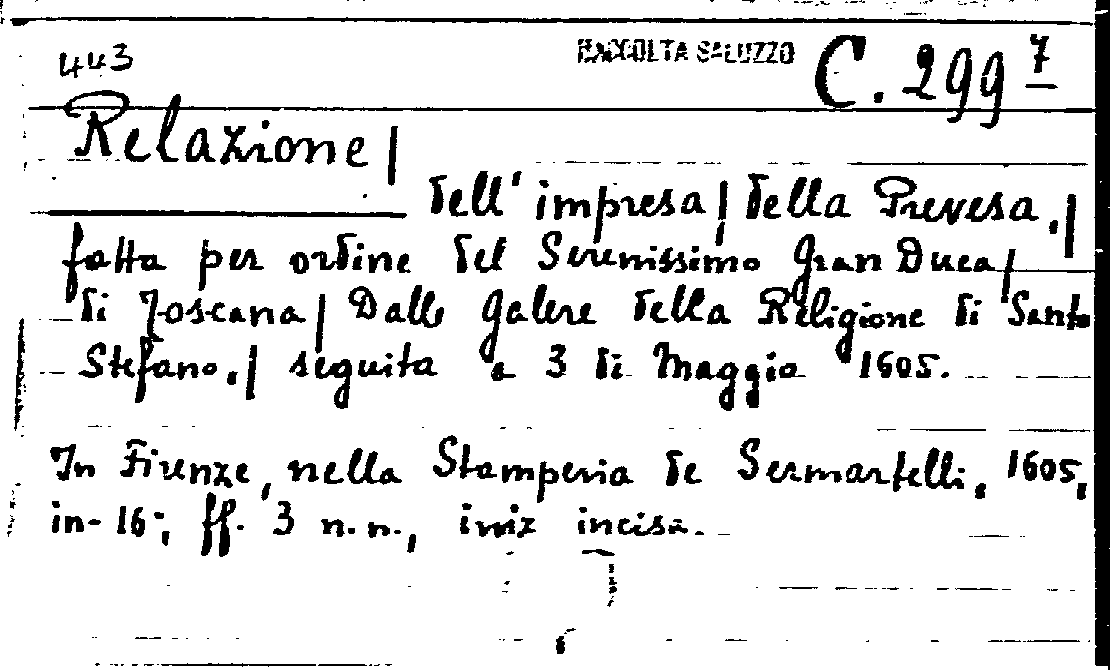 443 RACCOLTA SALUZZO C. 299 7
Relazione|
dell' impresa| della Prevesa.|
fatta per ordine del Serenissimo Gran Duca|
di Toscana| Dalle Galere della Religione di Santo
Stefano.| seguita a 3 di Maggio 1605.
In Firenze, nella Stamperia de Sermartelli, 1605,
in-16°, ff. 3 n.n., iniz incisa.